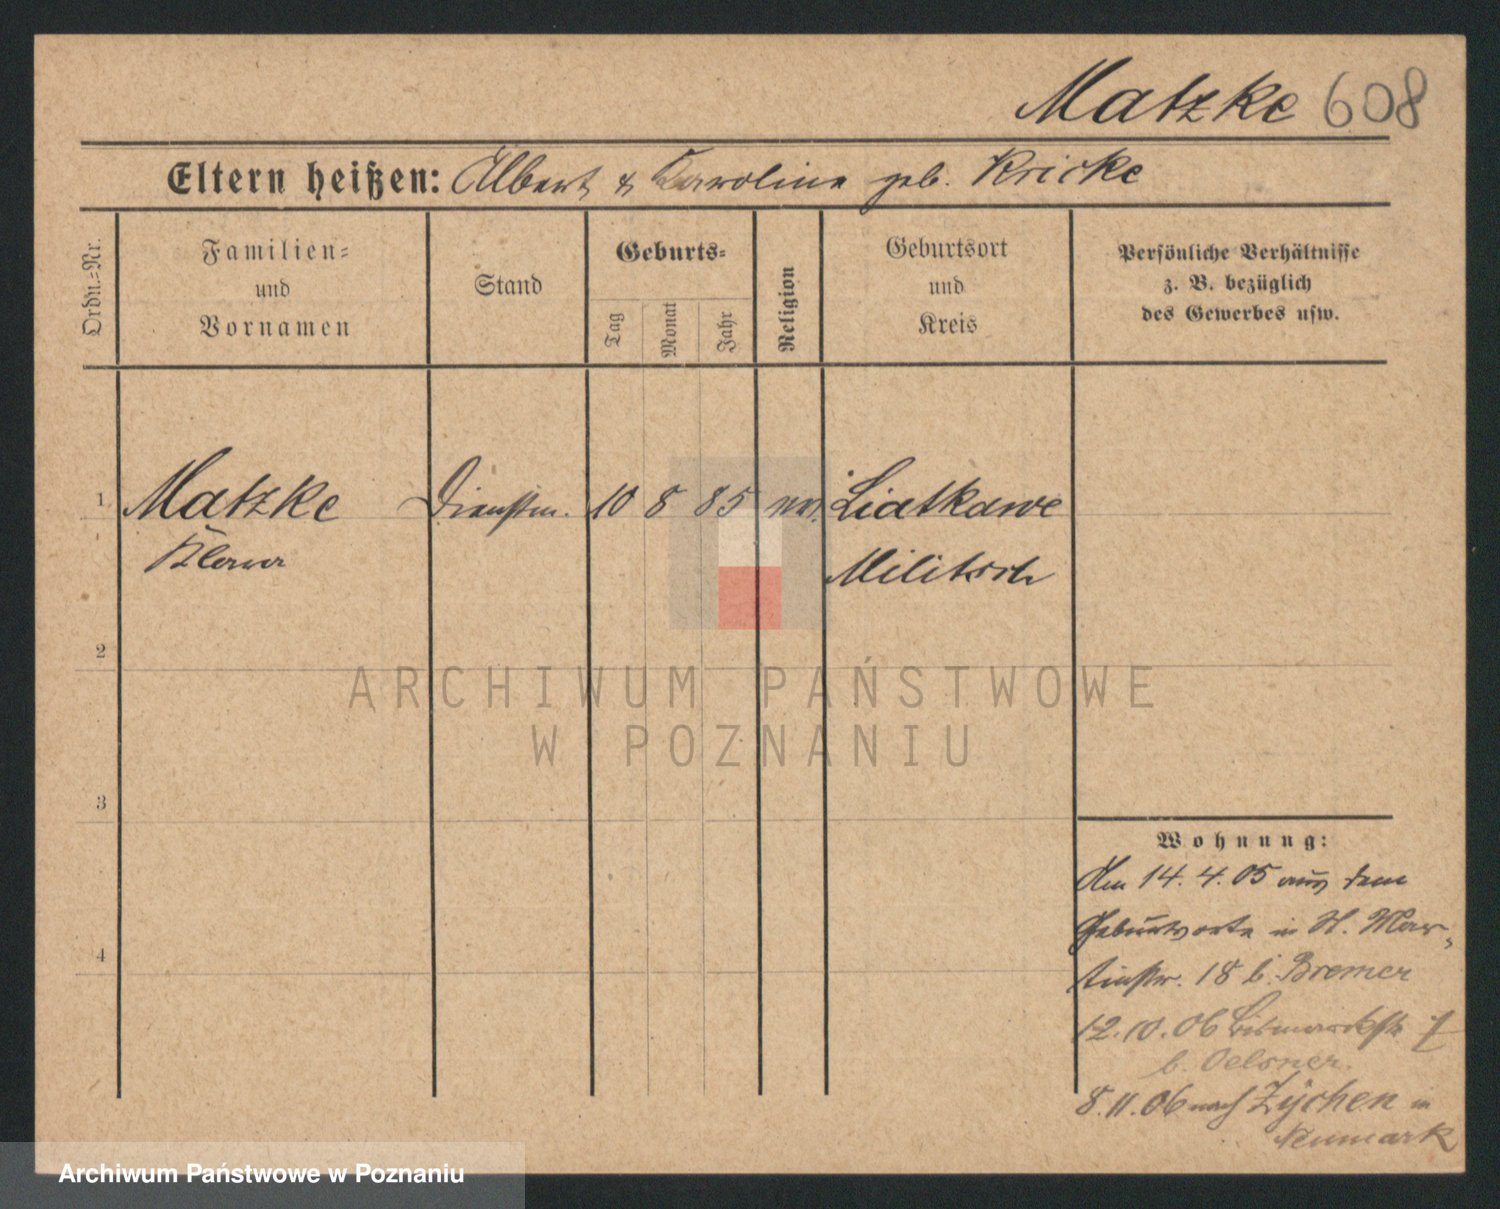 Matzke 608
Eltern heißen: Albert & Karoline geb. Kricke
Ordn.=Nr.
Familien=
und
Vornamen
Stand
Geburts=
Tag
Monat
Jahr
Religion
Geburtsort
und
Kreis
Persönliche Verhältnisse
z. B. bezüglich
des Gewerbes usw.
1 Matzke Dienstm. 10 8 85 ev. Liatkawe
Klara Militsch
2
3
4
ARCHIWUM PAŃSTWOWE
W POZNANIU
Wohnung:
Am 14. 4. 05 aus dem
Geburtsorte in St. Mar-
tinstr. 18 b. Bremer
12. 10. 06 Bismarckstr. 7
b. Oelsner.
8. 11. 06 nach Zÿchen in
Neumark
Archiwum Państwowe w Poznaniu